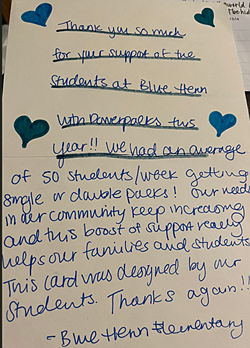 Thank you so much
for your support of the
students at Blue Henn
with Powerpacks this
year!! We had an average
of 50 students/week getting
single or double packs! Our needs
in our community keep increasing
and this boost of support really
helps our families and students.
This card was designed by our
students. Thanks again!!
- Blue Henn Elementary